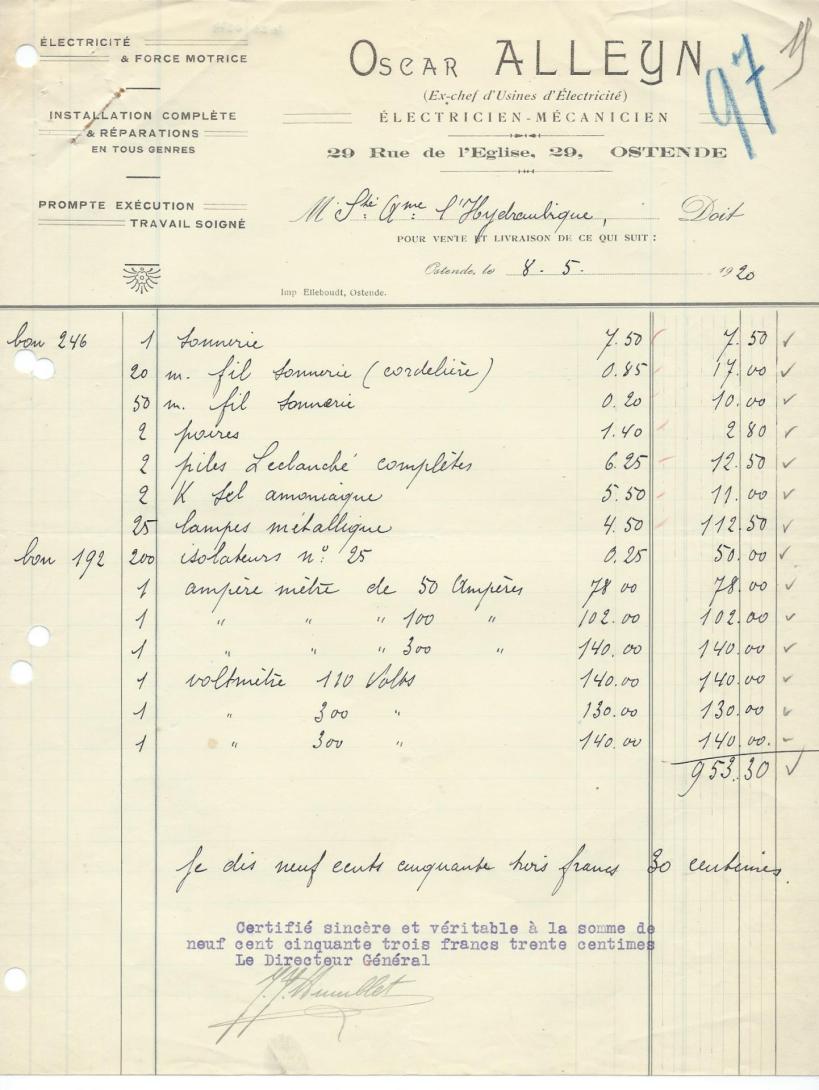 ÉLECTRICITÉ
& FORCE MOTRICE
INSTALLATION COMPLÈTE
& RÉPARATIONS
EN TOUS GENRES
PROMPTE EXÉCUTION
TRAVAIL SOIGNÉ
OSCAR ALLEYN
97
(Ex-chef d'Usines d'Électricité)
ÉLECTRICIEN-MÉCANICIEN
29 Rue de l'Eglise, 29, OSTENDE
M Sté: Ame l'Hydraulique, Doit
POUR VENTE ET LIVRAISON DE CE QUI SUIT :
Ostende, le 8. 5. 1920
Imp Elleboudt, Ostende.
bon 246 1 sonnerie 7.50 7.50
20 m. fil sonnerie (cordelière) 0.85 17.00
50 m. fil sonnerie 0.20 10.00
2 poires 1.40 2 80
2 piles Leclanché complètes 6.25 12.50
2 K sel amoniaque 5.50 11.00
25 lampes métallique 4.50 112.50
bon 192 200 isolateurs n°: 25 0.25 50.00
1 ampère mètre de 50 Ampères 78 00 78.00
1 " " " 100 " 102.00 102.00
1 " " " 300 " 140.00 140.00
1 voltmètre 110 Volts 140.00 140.00
1 " 300 " 130.00 130.00
1 " 300 " 140.00 140.00.
953.30
Je dis neuf cents cinquante trois francs 30 centimes.
Certifié sincère et véritable à la somme de
neuf cent cinquante trois francs trente centimes
Le Directeur Général